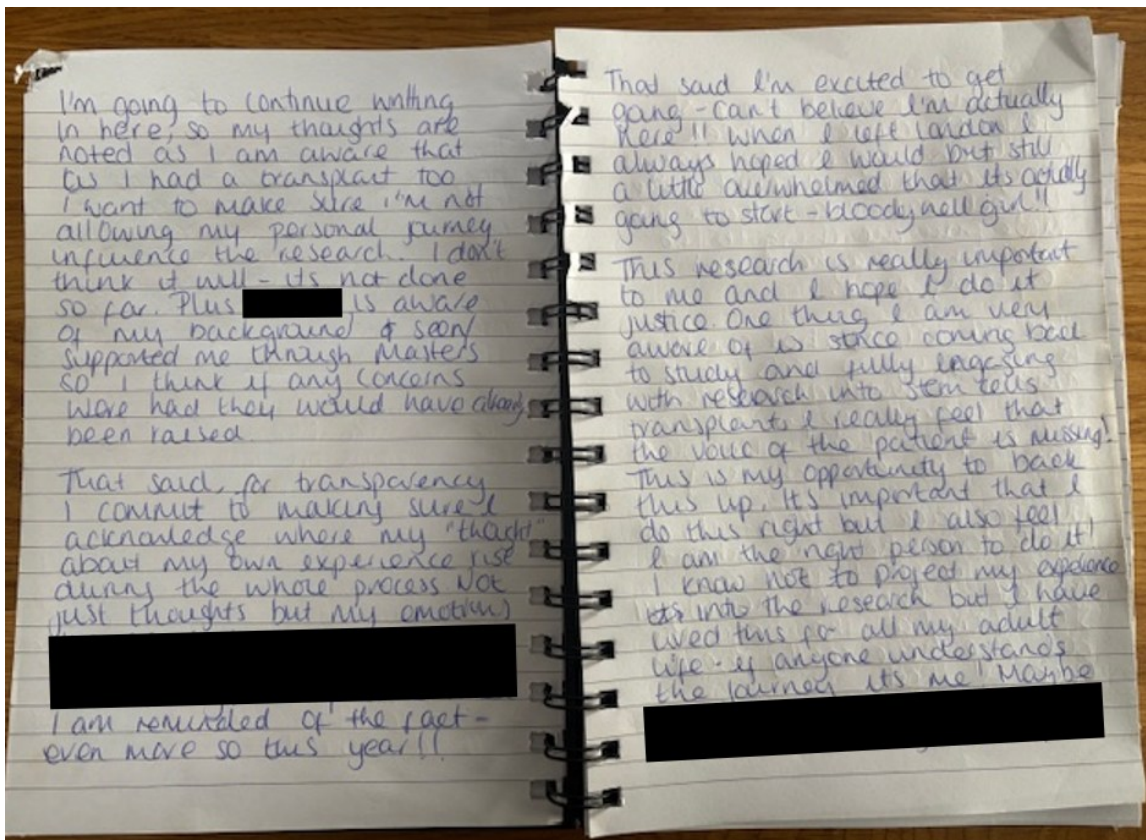 I'm going to continue writing
in here, so my thoughts are
noted as I am aware that
as I had a transplant too
I want to make sure I'm not
allowing my personal journey
influence the research. I don't
think it will - its not done
so far. Plus is aware
of my background &
supported me through Masters
so I think if any concerns
were had they would have already
been raised.
That said, for transparency
I commit to making sure I
acknowledge where my "thought"
about my own experience rise
during the whole process Not
just thoughts but my emotions
I am reminded of the fact -
even more so this year!!
That said I'm excited to get
going - can't believe I'm actually
here!! When I left London I
always hoped I would but still
a little overwhelmed that its actually
going to start - bloody hell girl!!
This research is really important
to me and I hope I do it
justice. One thing I am very
aware of is since coming back
to study and fully engaging
with research into stem cells
transplants I really feel that
the voice of the patient is missing!
This is my opportunity to back
this up. It's important that I
do this right but I also feel
I am the right person to do it!
I know not to project my experience
into the research but I have
lived this for all my adult
life - if anyone understands
the journey its me! Maybe